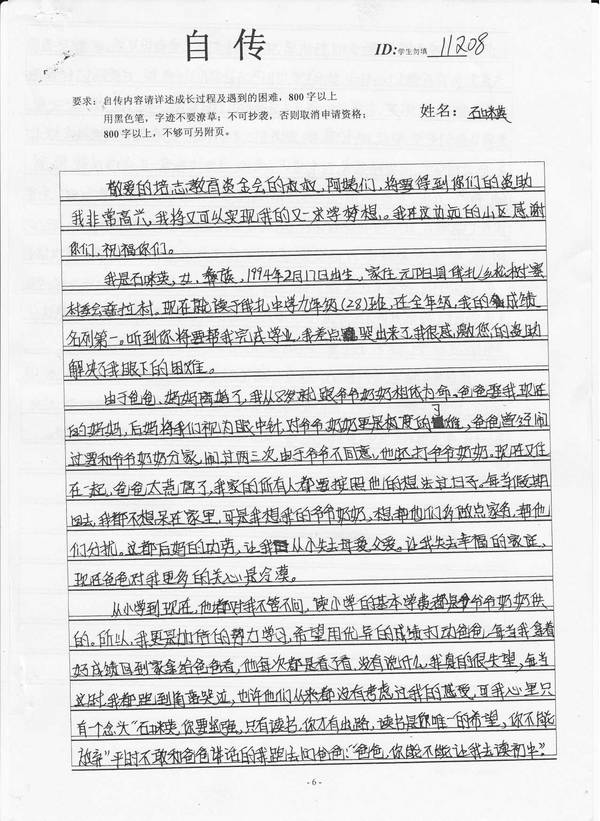 自传
ID:学生勿填 11208
要求：自传内容请详述成长过程及遇到的困难，800字以上
用黑色笔，字迹不要潦草；不可抄袭，否则取消申请资格；
800字以上，不够可另附页。
姓名：石咪英
敬爱的培志教育资金会的叔叔，阿姨们，将要得到你们的资助
我非常高兴，我将又可以实现我的又一求学梦想。我在这边远的山区感谢
你们，祝福你们。
我是石咪英，女，彝族，1994年2月17日出生，家住元阳县俄扎乡松树寨
村委会 拉村。现在就读于俄扎中学九年级(28)班，在全年级，我的成绩
名列第一。听到你将要帮我完成学业，我差点哭出来了我很感激您的资助
解决了我眼下的困难。
由于爸爸、妈妈离婚了，我从8岁就跟爷爷奶奶相依为命。爸爸娶我现在
的妈妈，后妈将我们视为眼中针，对爷爷奶奶更是极度了的 难，爸爸曾经闹
过要和爷爷奶奶分家，闹过两三次由于爷爷不同意，他就打爷爷奶奶。现在又住
在一起，爸爸太荒唐了，我家的所有人都要按照他的想法过日子。每当假期
回去，我都不想呆在家里，可是我想我的爷爷奶奶，想帮他们多做点家务，帮他
们分扰。这都后妈的功劳，让我从小失去母爱父爱。让我失去幸福的家庭，
现在爸爸对我更多的关心是冷漠。
从小学到现在，他都对我不管不问，读小学的基本学费都是爷爷奶奶供
的。所以，我更要加倍的努力学习，希望用优异的成绩打动爸爸，每当我拿着
好成绩回到家拿给爸爸看，他每次都是看了看，没有说什么，我真的很失望，每当
这时，我都跑到角落哭泣，也许他们从来都没有考虑过我的感受，可我心里只
有一个念头“石咪英，你要坚强，只有读书，你才有出路，读书是你唯一的希望，你不能
放弃”平时不敢和爸爸讲话的我跑去问爸爸：“爸爸，你能不能让我去读初中”。
- 6 -